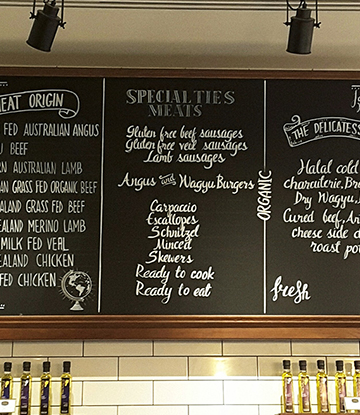 EAT ORIGIN
FED AUSTRALIAN ANGUS
BEEF
AUSTRALIAN LAMB
GRASS FED ORGANIC BEEF
GRASS FED BEEF
MERINO LAMB
MILK FED VEAL
CHICKEN
FED CHICKEN
SPECIALTIES
MEATS
Gluten free beef sausages
Gluten free veal sausages
Lamb sausages
Angus and Wagyu Burgers
Carpaccio
Escallopes
Schnitzel
Minced
Skewers
Ready to cook
Ready to eat
ORGANIC
THE DELICATESS
Halal cold
charcuterie, Br
Dry Wagyu,
Cured beef, An
cheese side d
roast po
fresh